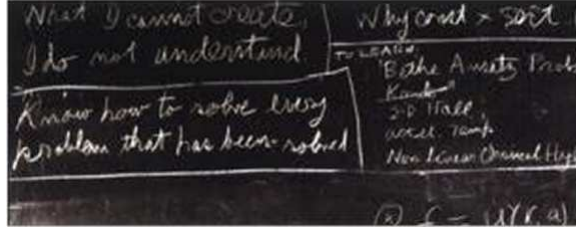 What I cannot create,
I do not understand.
Know how to solve every
problem that has been solved
Why const × sort
TO LEARN
Bethe Ansatz Prob
Kondo
2-D Hall
accel. Temp
Non Linear Classical Hyd